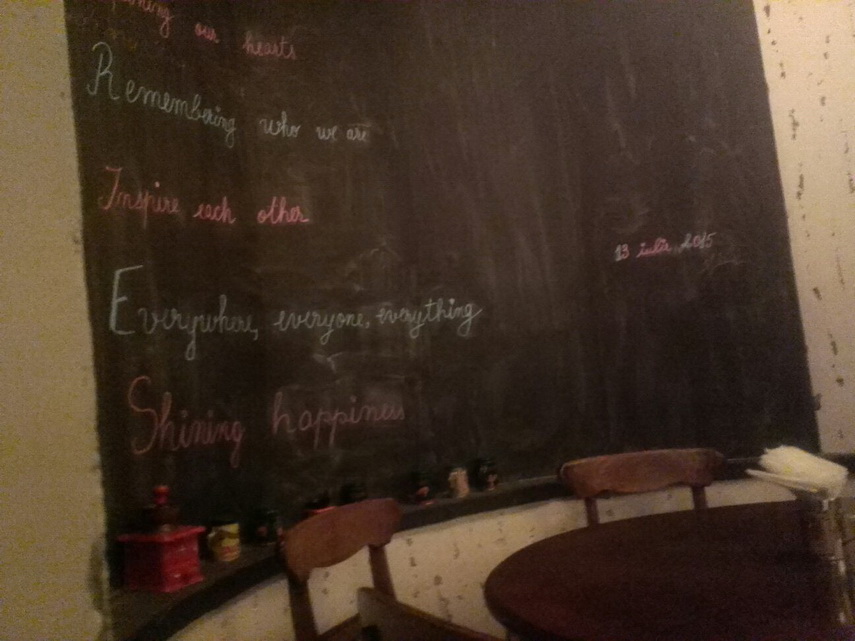 our hearts
Remembering who we are
Inspire each other
13 iulie 2015
Everywhere, everyone, everything
Shining happiness